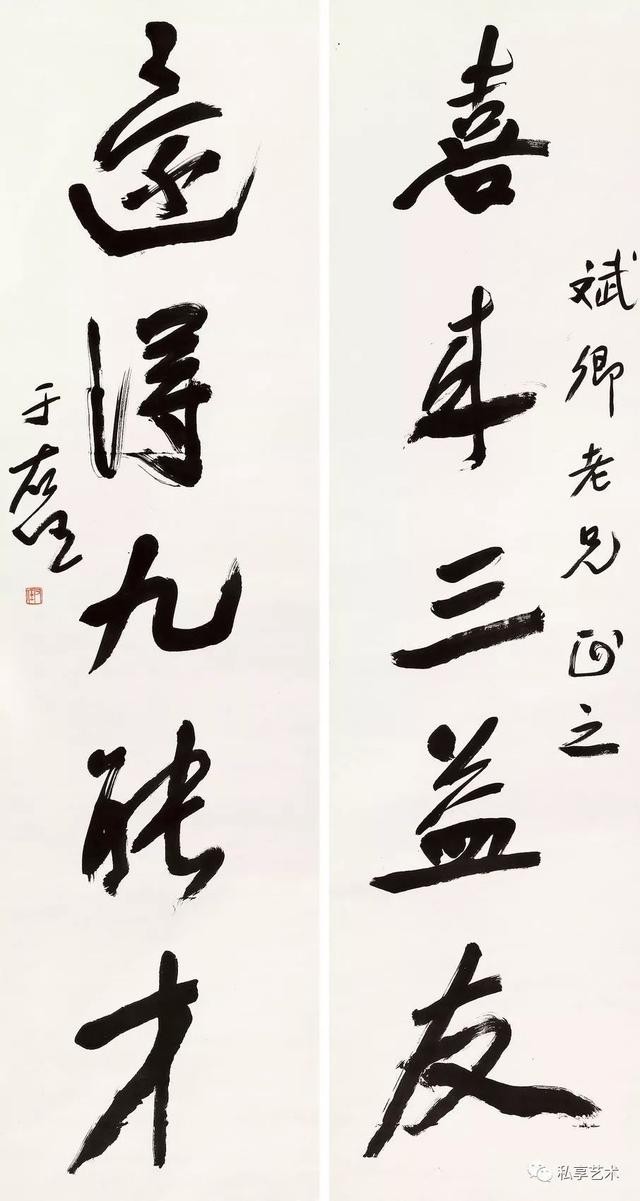 斌卿老兄正之
喜來三益友
還得九能才
于右任
私享艺术